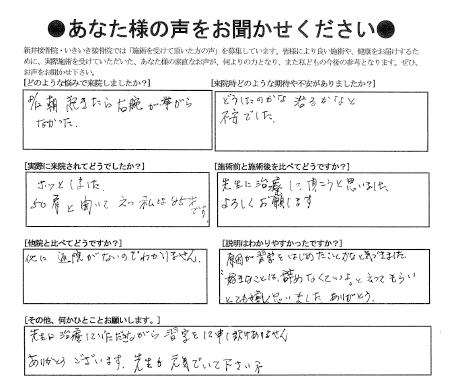 ●あなた様の声をお聞かせください●
新井接骨院・いきいき接骨院では「施術を受けて頂いた方の声」を募集しています。皆様により良い施術や、健康をお届けするために、実際施術を受けていただいた、あなた様の素直なお声が、何よりの力となり、また私どもの今後の参考となります。ぜひ、お声をお聞かせ下さい。
[どのような悩みで来院しましたか?]
昨朝 起きたら右腕が挙がら
なかった.
[来院時どのような期待や不安がありましたか?]
どうしたのかな 治るかなと
不安でした.
[実際に来院されてどうでしたか?]
ホッとしました.
50肩と聞いて えっ私は85才
です.
[施術前と施術後を比べてどうですか?]
先生に治療して頂こうと思いました.
よろしくお願いします
[他院と比べてどうですか?]
他に通院がないのでわかりません.
[説明はわかりやすかったですか?]
原因が習字をはじめたことかなと気づきました.
"好きなことは、辞めなくていいよ。と云ってもらい
とても嬉しく思いました ありがとう.
[その他、何かひとことお願いします。]
先生に治療していただきながら 習字をして申し訳けありません
ありがとうございます. 先生も元気でいて下さいネ